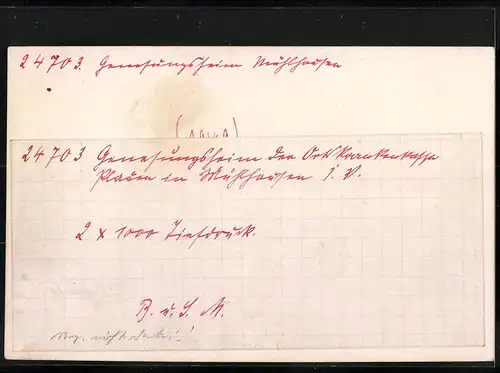 24703. Genesungsheim Mühlhausen
24703 Genesungsheim der Ortskrankenkasse
Plauen in Mühlhausen i. V.
2 x 1000 Tiefdruck.
B. u. S. M.
nicht dabei!